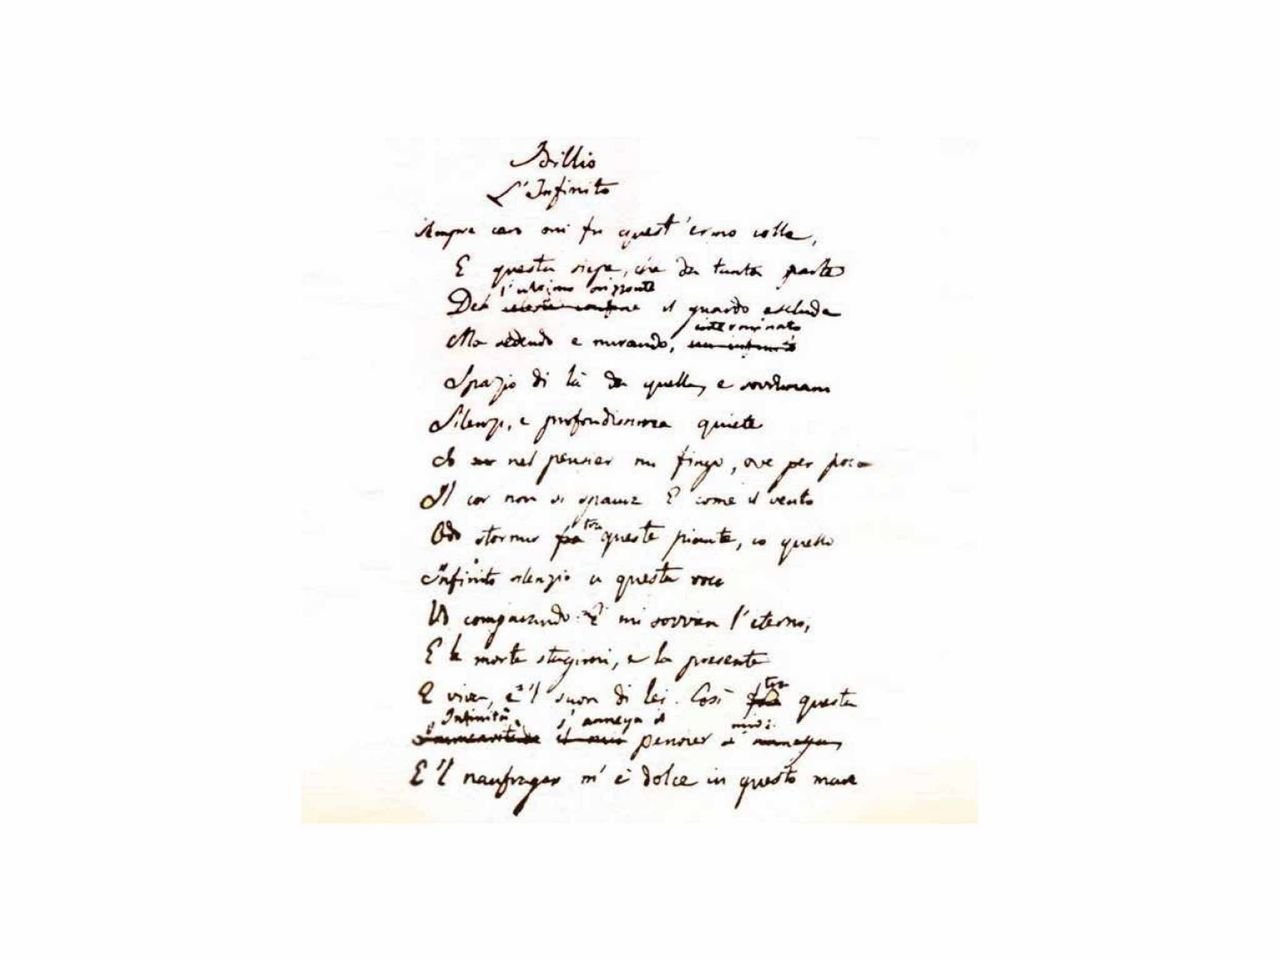 Idillio
L'Infinito
Sempre caro mi fu quest'ermo colle,
E questa siepe, che da tanta parte
l'ultimo orizzonte
Del celeste confine il guardo esclude
interminato
Ma sedendo e mirando,
Spazio di là da quella, e sovrumani
Silenzi, e profondissima quiete
Io nel pensier mi fingo, ove per poco
Il cor non si spaura. E come il vento
tra
Odo stormir fra queste piante, io quello
Infinito silenzio a questa voce
Vo comparando: E mi sovvien l'eterno,
E le morte stagioni, e la presente
tra
E viva, e 'l suon di lei. Così fra questa
Infinità s'annega il mio
il mio pensier s'annega,
E 'l naufragar m'è dolce in questo mare